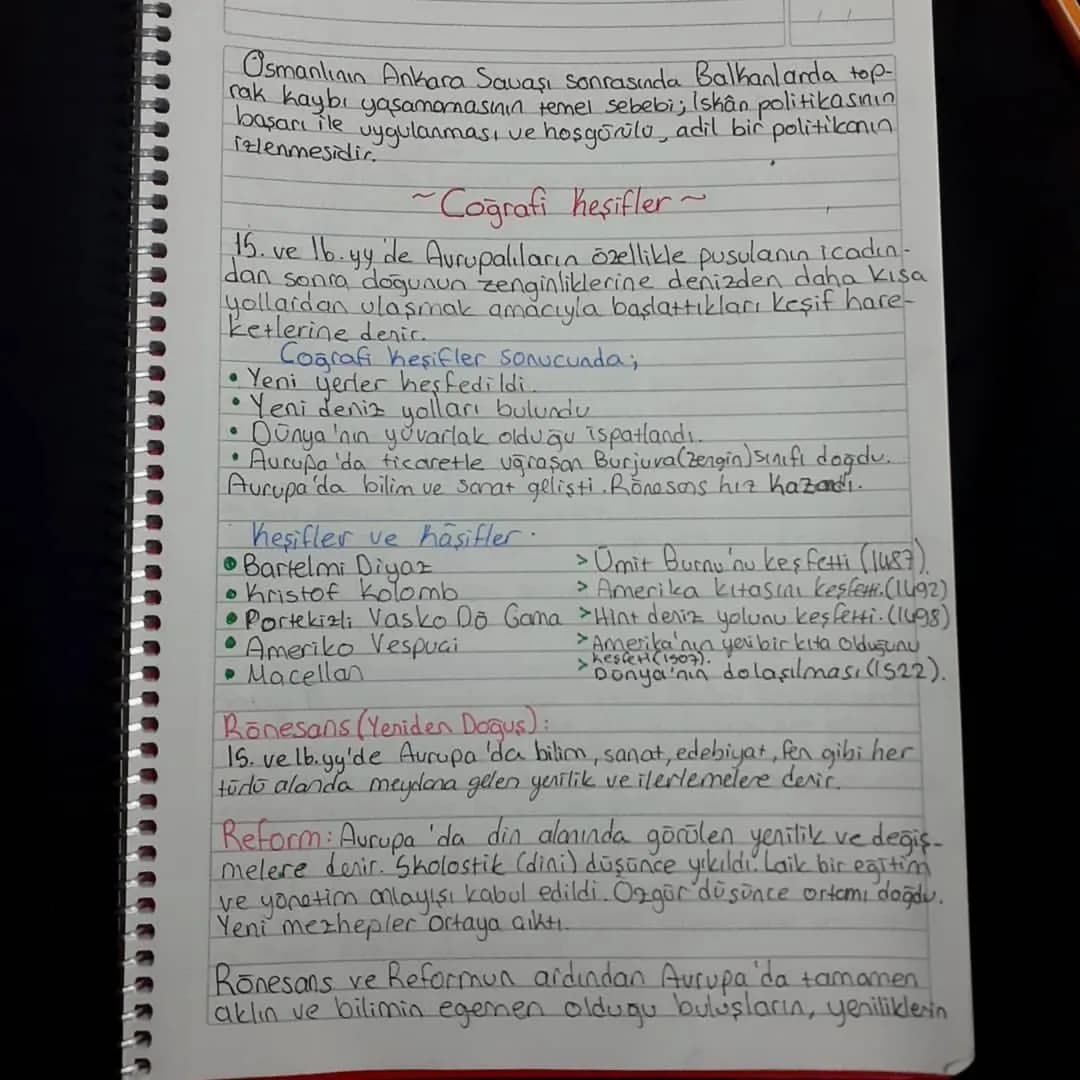 Osmanlının Ankara Savaşı sonrasında Balkanlarda top-
rak kaybı yaşamamasının temel sebebi; İskân politikasının
başarı ile uygulanması ve hoşgörülü, adil bir politikanın
izlenmesidir.
~Coğrafi Keşifler~
15. ve 16.yy'de Avrupalıların özellikle pusulanın icadın-
dan sonra doğunun zenginliklerine denizden daha kısa
yollardan ulaşmak amacıyla başlattıkları keşif hare-
ketlerine denir.
Coğrafi keşifler sonucunda;
• Yeni yerler keşfedildi.
• Yeni deniz yolları bulundu
• Dünya'nın yuvarlak olduğu ispatlandı.
• Avrupa'da ticaretle uğraşan Burjuva(zengin)sınıfı doğdu.
Avrupa'da bilim ve sanat gelişti. Rönesans hız kazandı.
Keşifler ve kâşifler.
• Bartelmi Diyaz > Ümit Burnu'nu keşfetti (1487).
• Kristof Kolomb > Amerika kıtasını keşfetti.(1492)
• Portekizli Vasko Dö Gama > Hint deniz yolunu keşfetti.(1498)
• Ameriko Vespuci > Amerika'nın yeni bir kıta olduğunu
> keşfetti(1507).
• Macellan Dünya'nın dolaşılması(1522).
Rönesans (Yeniden Doğuş):
15. ve 16.yy'de Avrupa'da bilim, sanat, edebiyat, fen gibi her
türlü alanda meydana gelen yenilik ve ilerlemelere denir.
Reform: Avrupa'da din alanında görülen yenilik ve değiş-
melere denir. Skolostik (dini) düşünce yıkıldı. Laik bir eğitim
ve yönetim anlayışı kabul edildi. Özgür düşünce ortamı doğdu.
Yeni mezhepler ortaya çıktı.
Rönesans ve Reformun ardından Avrupa'da tamamen
aklın ve bilimin egemen olduğu buluşların, yeniliklerin